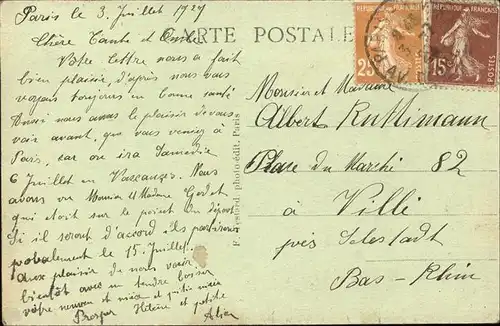 Paris le 3 Juillet 1927
CARTE POSTALE
Chère Tante et Oncle
Votre lettre nous a fait
bien plaisir, d'après nous vous
voyons toujours en bonne santé
Aussi nous avons le plaisir de vous
voir avant, que vous veniez à
Paris, car on ira Samedie
6 Juillet en Vacances. Nous
avons vu Monsieur et Madame Godet
qui était sur le point du départ
Si il seront d'accord ils partiraient
probalement le 15 Juillet.
aux plaisir de nous voir
bientôt avec un tendre baiser
votre neveux et nièce et petite nièce
Prosper Hélène et petite
Alice
photo édit. Paris
RÉPUBLIQUE FRANÇAISE
25
POSTES
RÉPUBLIQUE FRANÇAISE
15c
POSTES
Monsieur et Madame
Albert Ruttimann
Place du Marché 82
à Villé
près Sélestadt
Bas-Rhin